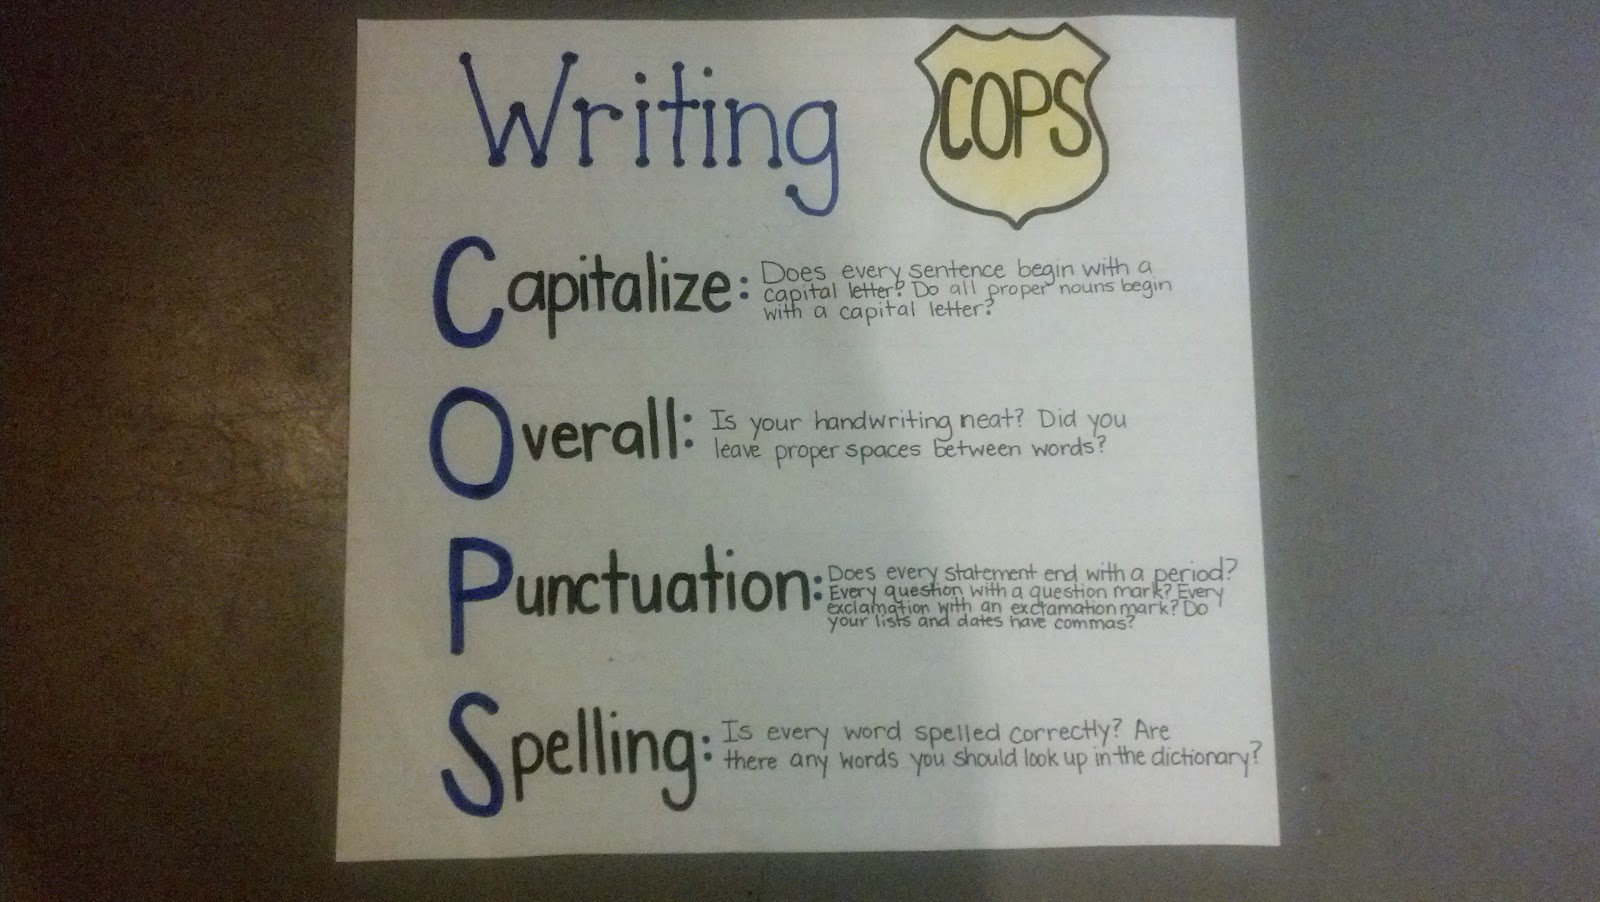 Writing COPS
Capitalize: Does every sentence begin with a
capital letter? Do all proper nouns begin
with a capital letter?
Overall: Is your handwriting neat? Did you
leave proper spaces between words?
Punctuation: Does every statement end with a period?
Every question with a question mark? Every
exclamation with an exclamation mark? Do
your lists and dates have commas?
Spelling: Is every word spelled correctly? Are
there any words you should look up in the dictionary?